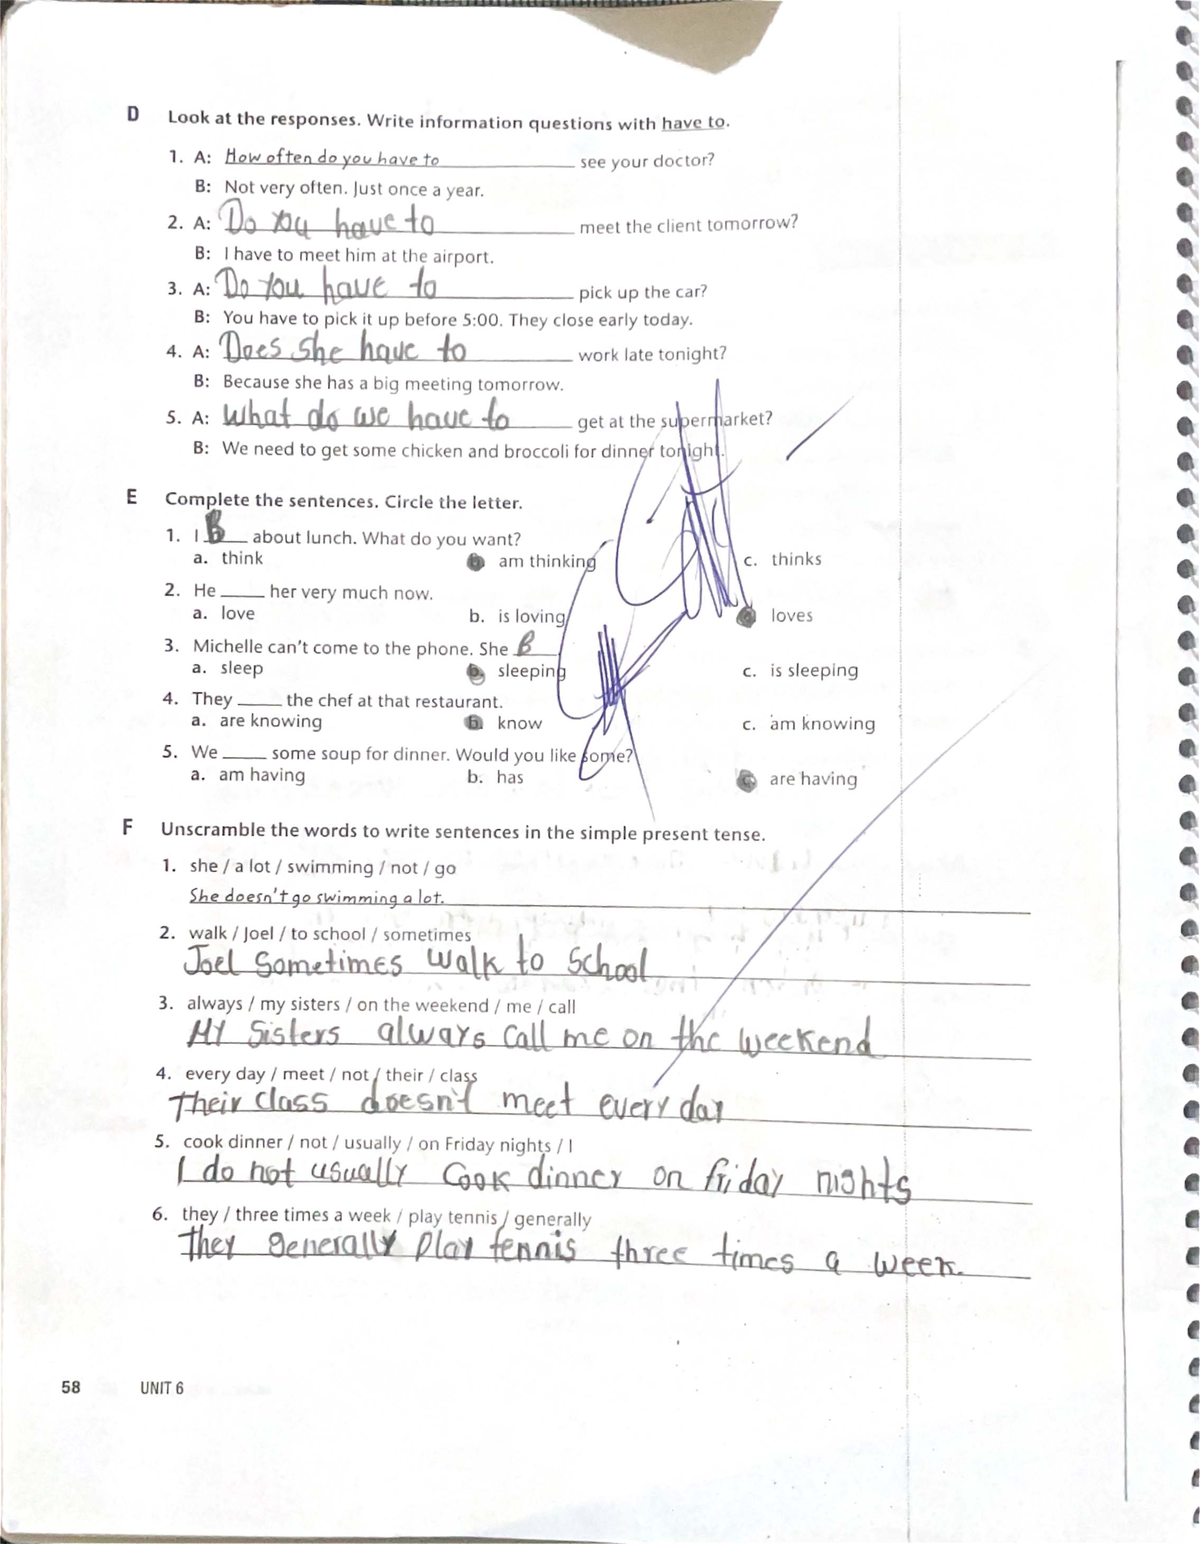 D Look at the responses. Write information questions with have to.
1. A: How often do you have to see your doctor?
B: Not very often. Just once a year.
2. A: Do you have to meet the client tomorrow?
B: I have to meet him at the airport.
3. A: Do you have to pick up the car?
B: You have to pick it up before 5:00. They close early today.
4. A: Does she have to work late tonight?
B: Because she has a big meeting tomorrow.
5. A: What do we have to get at the supermarket?
B: We need to get some chicken and broccoli for dinner tonight.
E Complete the sentences. Circle the letter.
1. I B about lunch. What do you want?
a. think b. am thinking c. thinks
2. He ____ her very much now.
a. love b. is loving c. loves
3. Michelle can't come to the phone. She B
a. sleep b. sleeping c. is sleeping
4. They ____ the chef at that restaurant.
a. are knowing b. know c. am knowing
5. We ____ some soup for dinner. Would you like some?
a. am having b. has c. are having
F Unscramble the words to write sentences in the simple present tense.
1. she / a lot / swimming / not / go
She doesn't go swimming a lot.
2. walk / Joel / to school / sometimes
Joel sometimes walk to school
3. always / my sisters / on the weekend / me / call
My sisters always call me on the weekend
4. every day / meet / not / their / class
Their class doesn't meet every day
5. cook dinner / not / usually / on Friday nights / I
I do not usually cook dinner on friday nights
6. they / three times a week / play tennis / generally
They generally play tennis three times a week.
58 UNIT 6